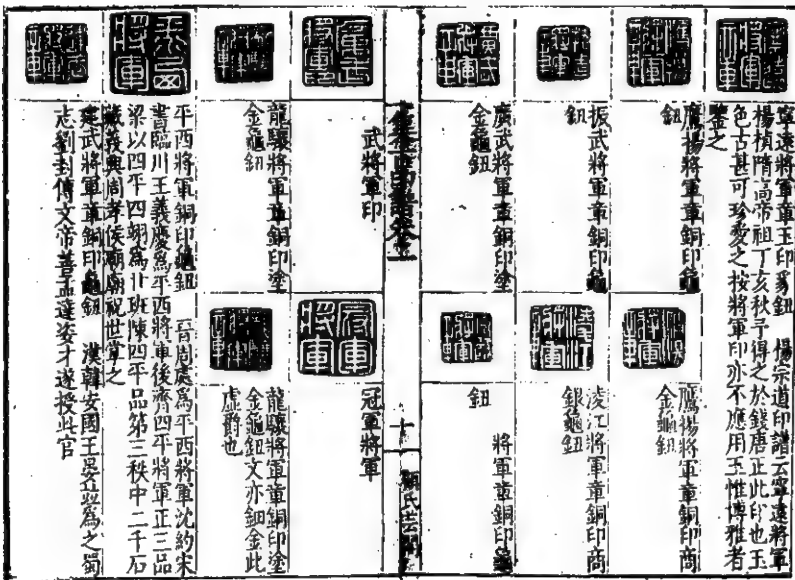 寧遠將軍章玉印豸鈕 楊宗道印譜云寧遠將軍
楊楨隋高帝祖丁亥秋予得之於錢唐正此印也玉
色古甚可珍愛之按將軍印亦不應用玉惟博雅者
鑒之
鷹揚將軍章銅印龜
鈕
鷹揚將軍章銅印商
金龜鈕
振武將軍章銅印龜
鈕
凌江將軍章銅印商
銀龜鈕
廣武將軍章銅印塗
金龜鈕
將軍章銅印龜
鈕
十一
顧氏芸閣
武將軍印
冠軍將軍
龍驤將軍章銅印塗
金龜鈕
龍驤將軍章銅印塗
金龜鈕文亦鈿金此
虛爵也
平西將軍銅印龜鈕 晉周處為平西將軍沈約宋
書臨川王義慶為平西將軍後齊四平將軍正三品
梁以四平四翊為廾班陳四平品第三秩中二千石
藏義興周孝侯廟廟祝世掌之
建武將軍章銅印龜鈕 漢韓安國王晏並為之蜀
志劉封傳文帝善孟達姿才遂授此官